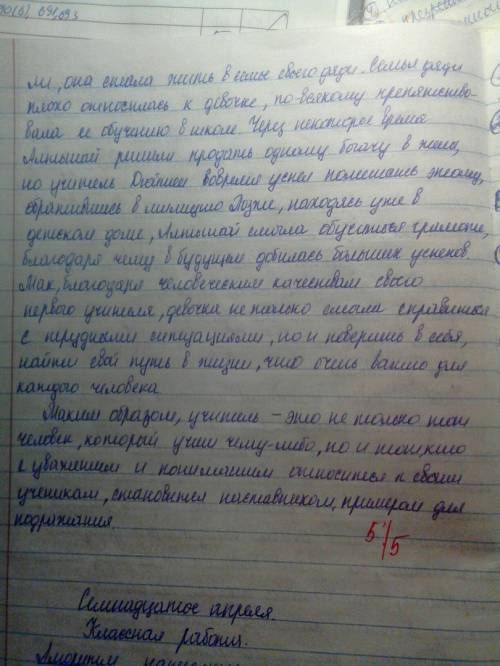 ли, она стала жить в семье своего дяди. Семья дяди
плохо относилась к девочке, по-всякому препятство-
вала ее обучению в школе. Через некоторое время
Алтынай решили продать одному богачу в жены,
но учитель Дюйшен вовремя успел помешать этому,
обратившись в милицию. Позже, находясь уже в
детском доме, Алтынай смогла обучиться грамоте,
благодаря чему в будущем добилась больших успехов.
Так, благодаря человеческим качествам своего
первого учителя, девочка не только смогла справиться
с трудными ситуациями, но и поверить в себя,
найти свой путь в жизни, что очень важно для
каждого человека.
Таким образом, учитель – это не только тот
человек, который учит чему-либо, но и тот, кто
с уважением и пониманием относится к своим
ученикам, становится наставником, примером для
подражания.
5/5
Семнадцатое апреля.
Классная работа.